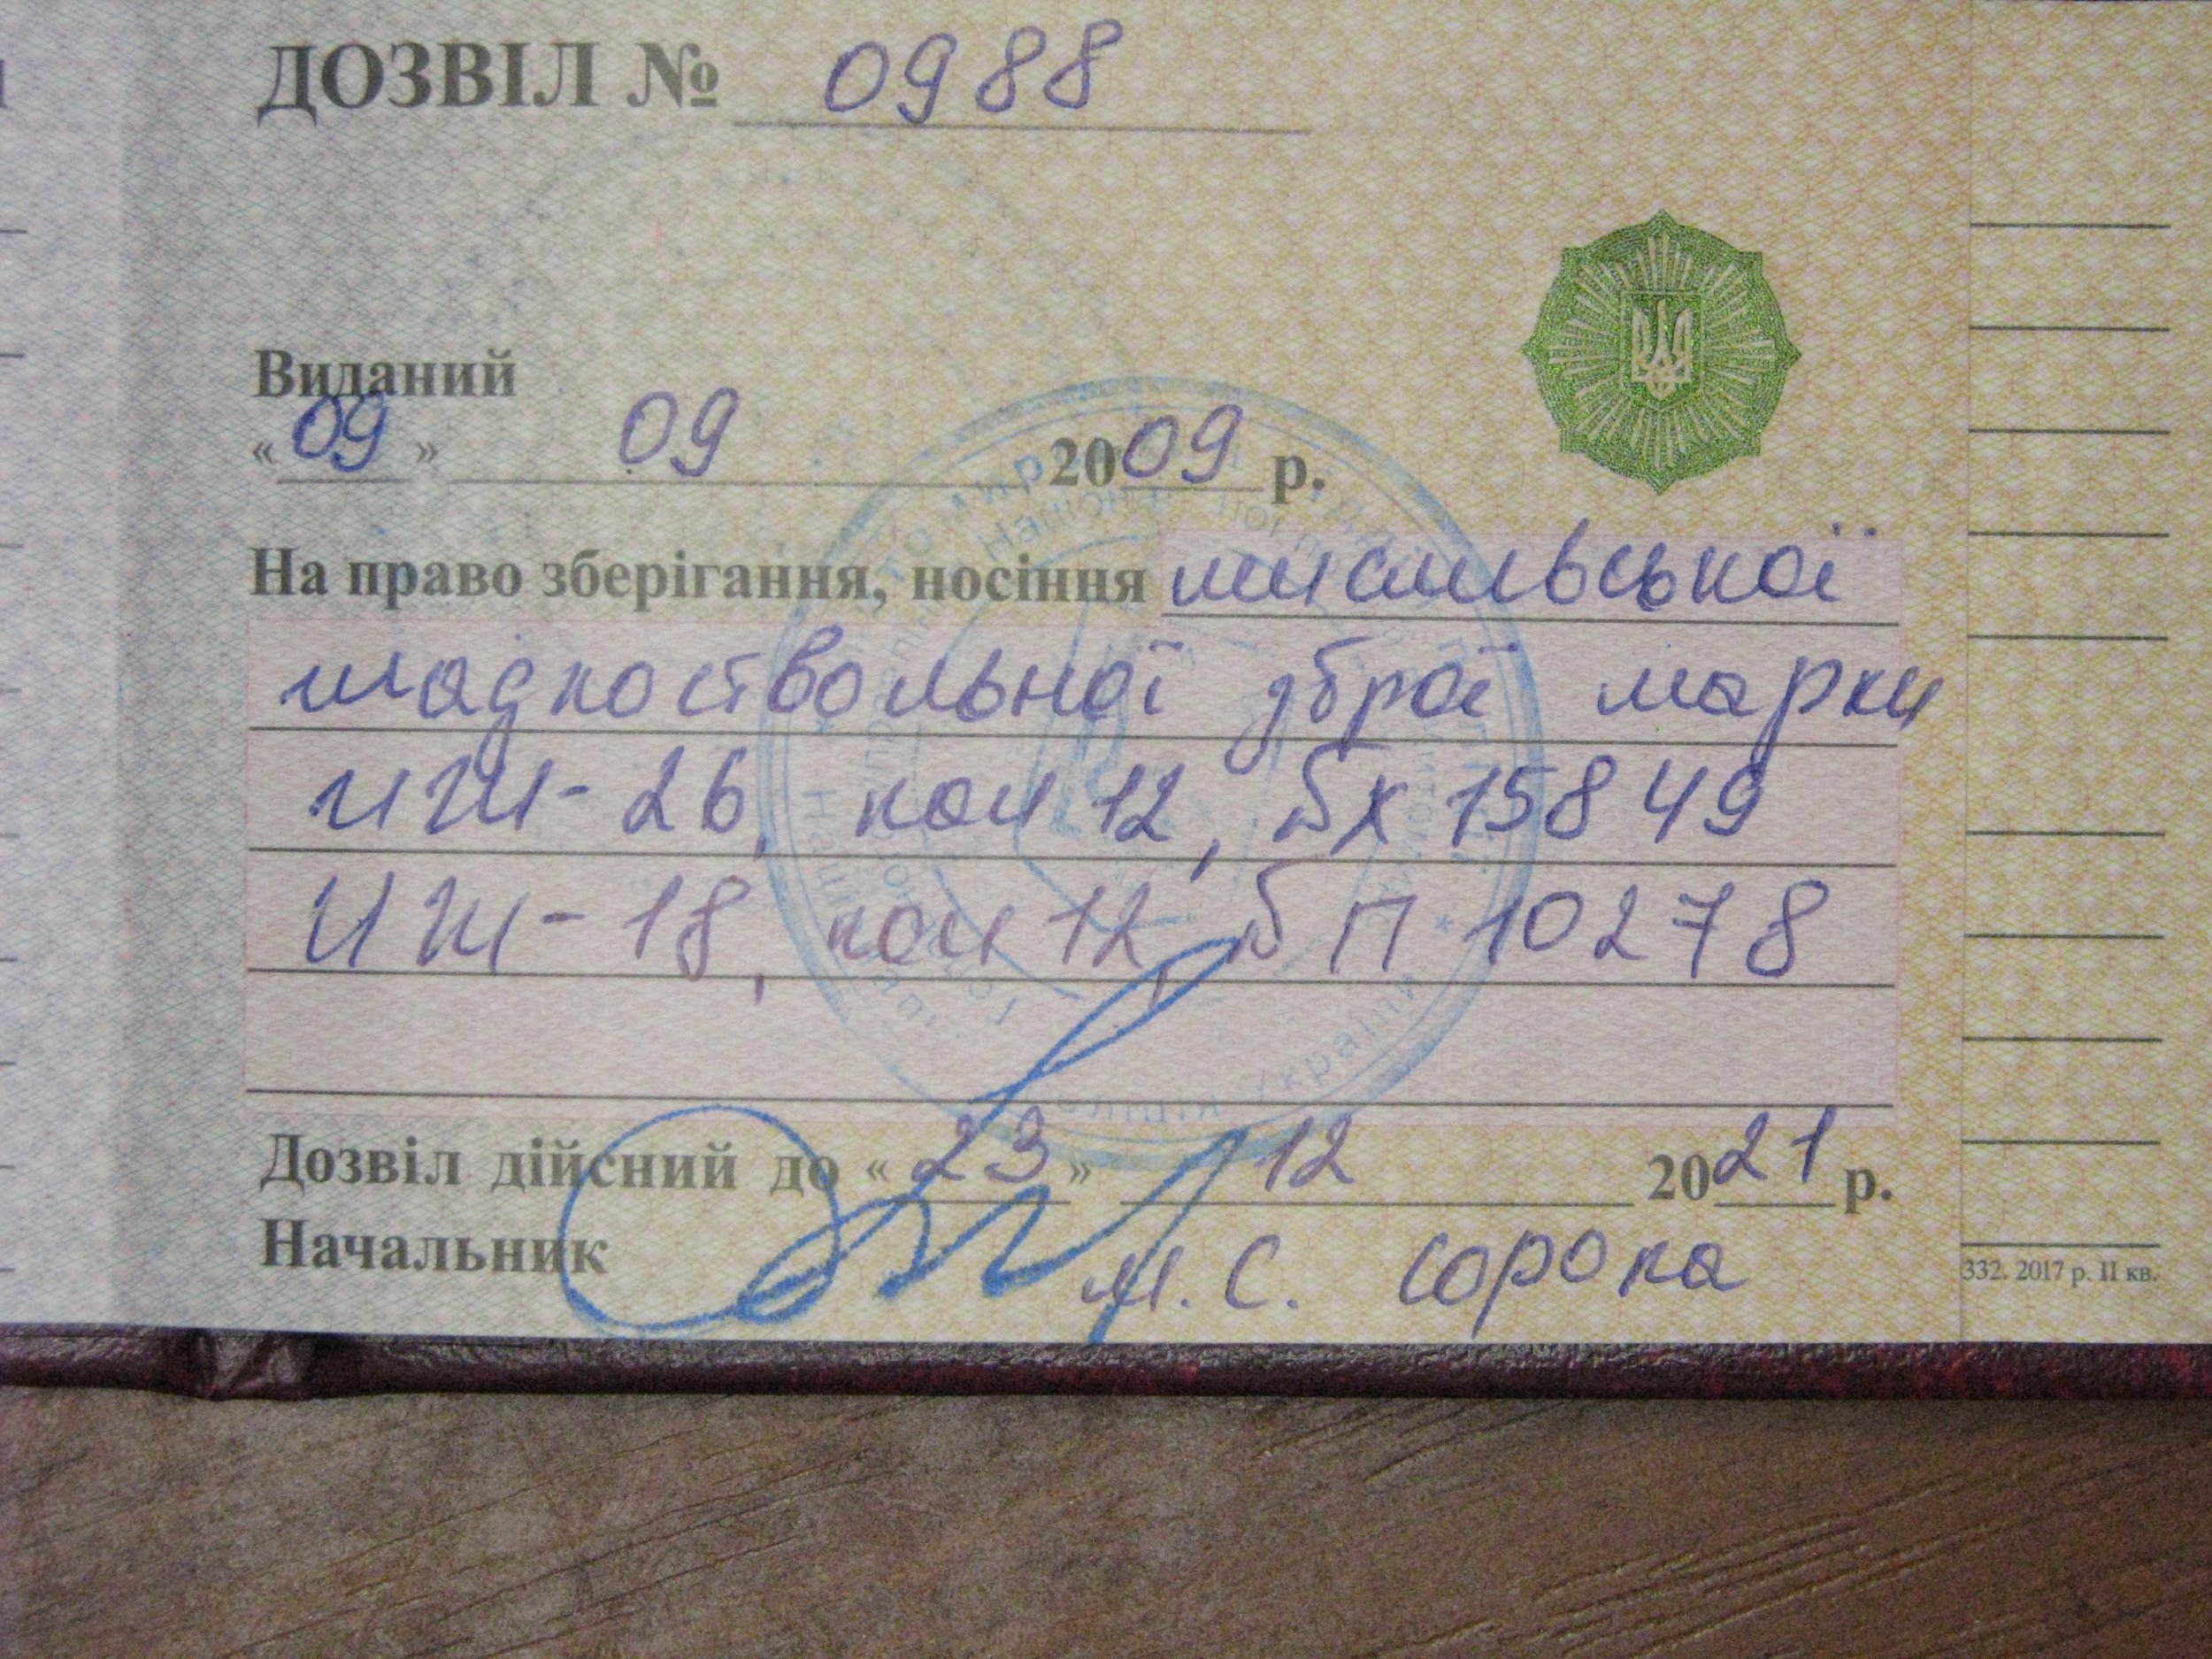 ДОЗВІЛ № 0988
Виданий
« 09 » 09 2009 р.
На право зберігання, носіння мисливської
гладкоствольної зброї марки
ИЖ-26, кал 12, БХ 15849
ИЖ-18, кал 12, БП 10278
Дозвіл дійсний до « 23 » 12 2021 р.
Начальник М.С. Сорока
332. 2017 р. II кв.